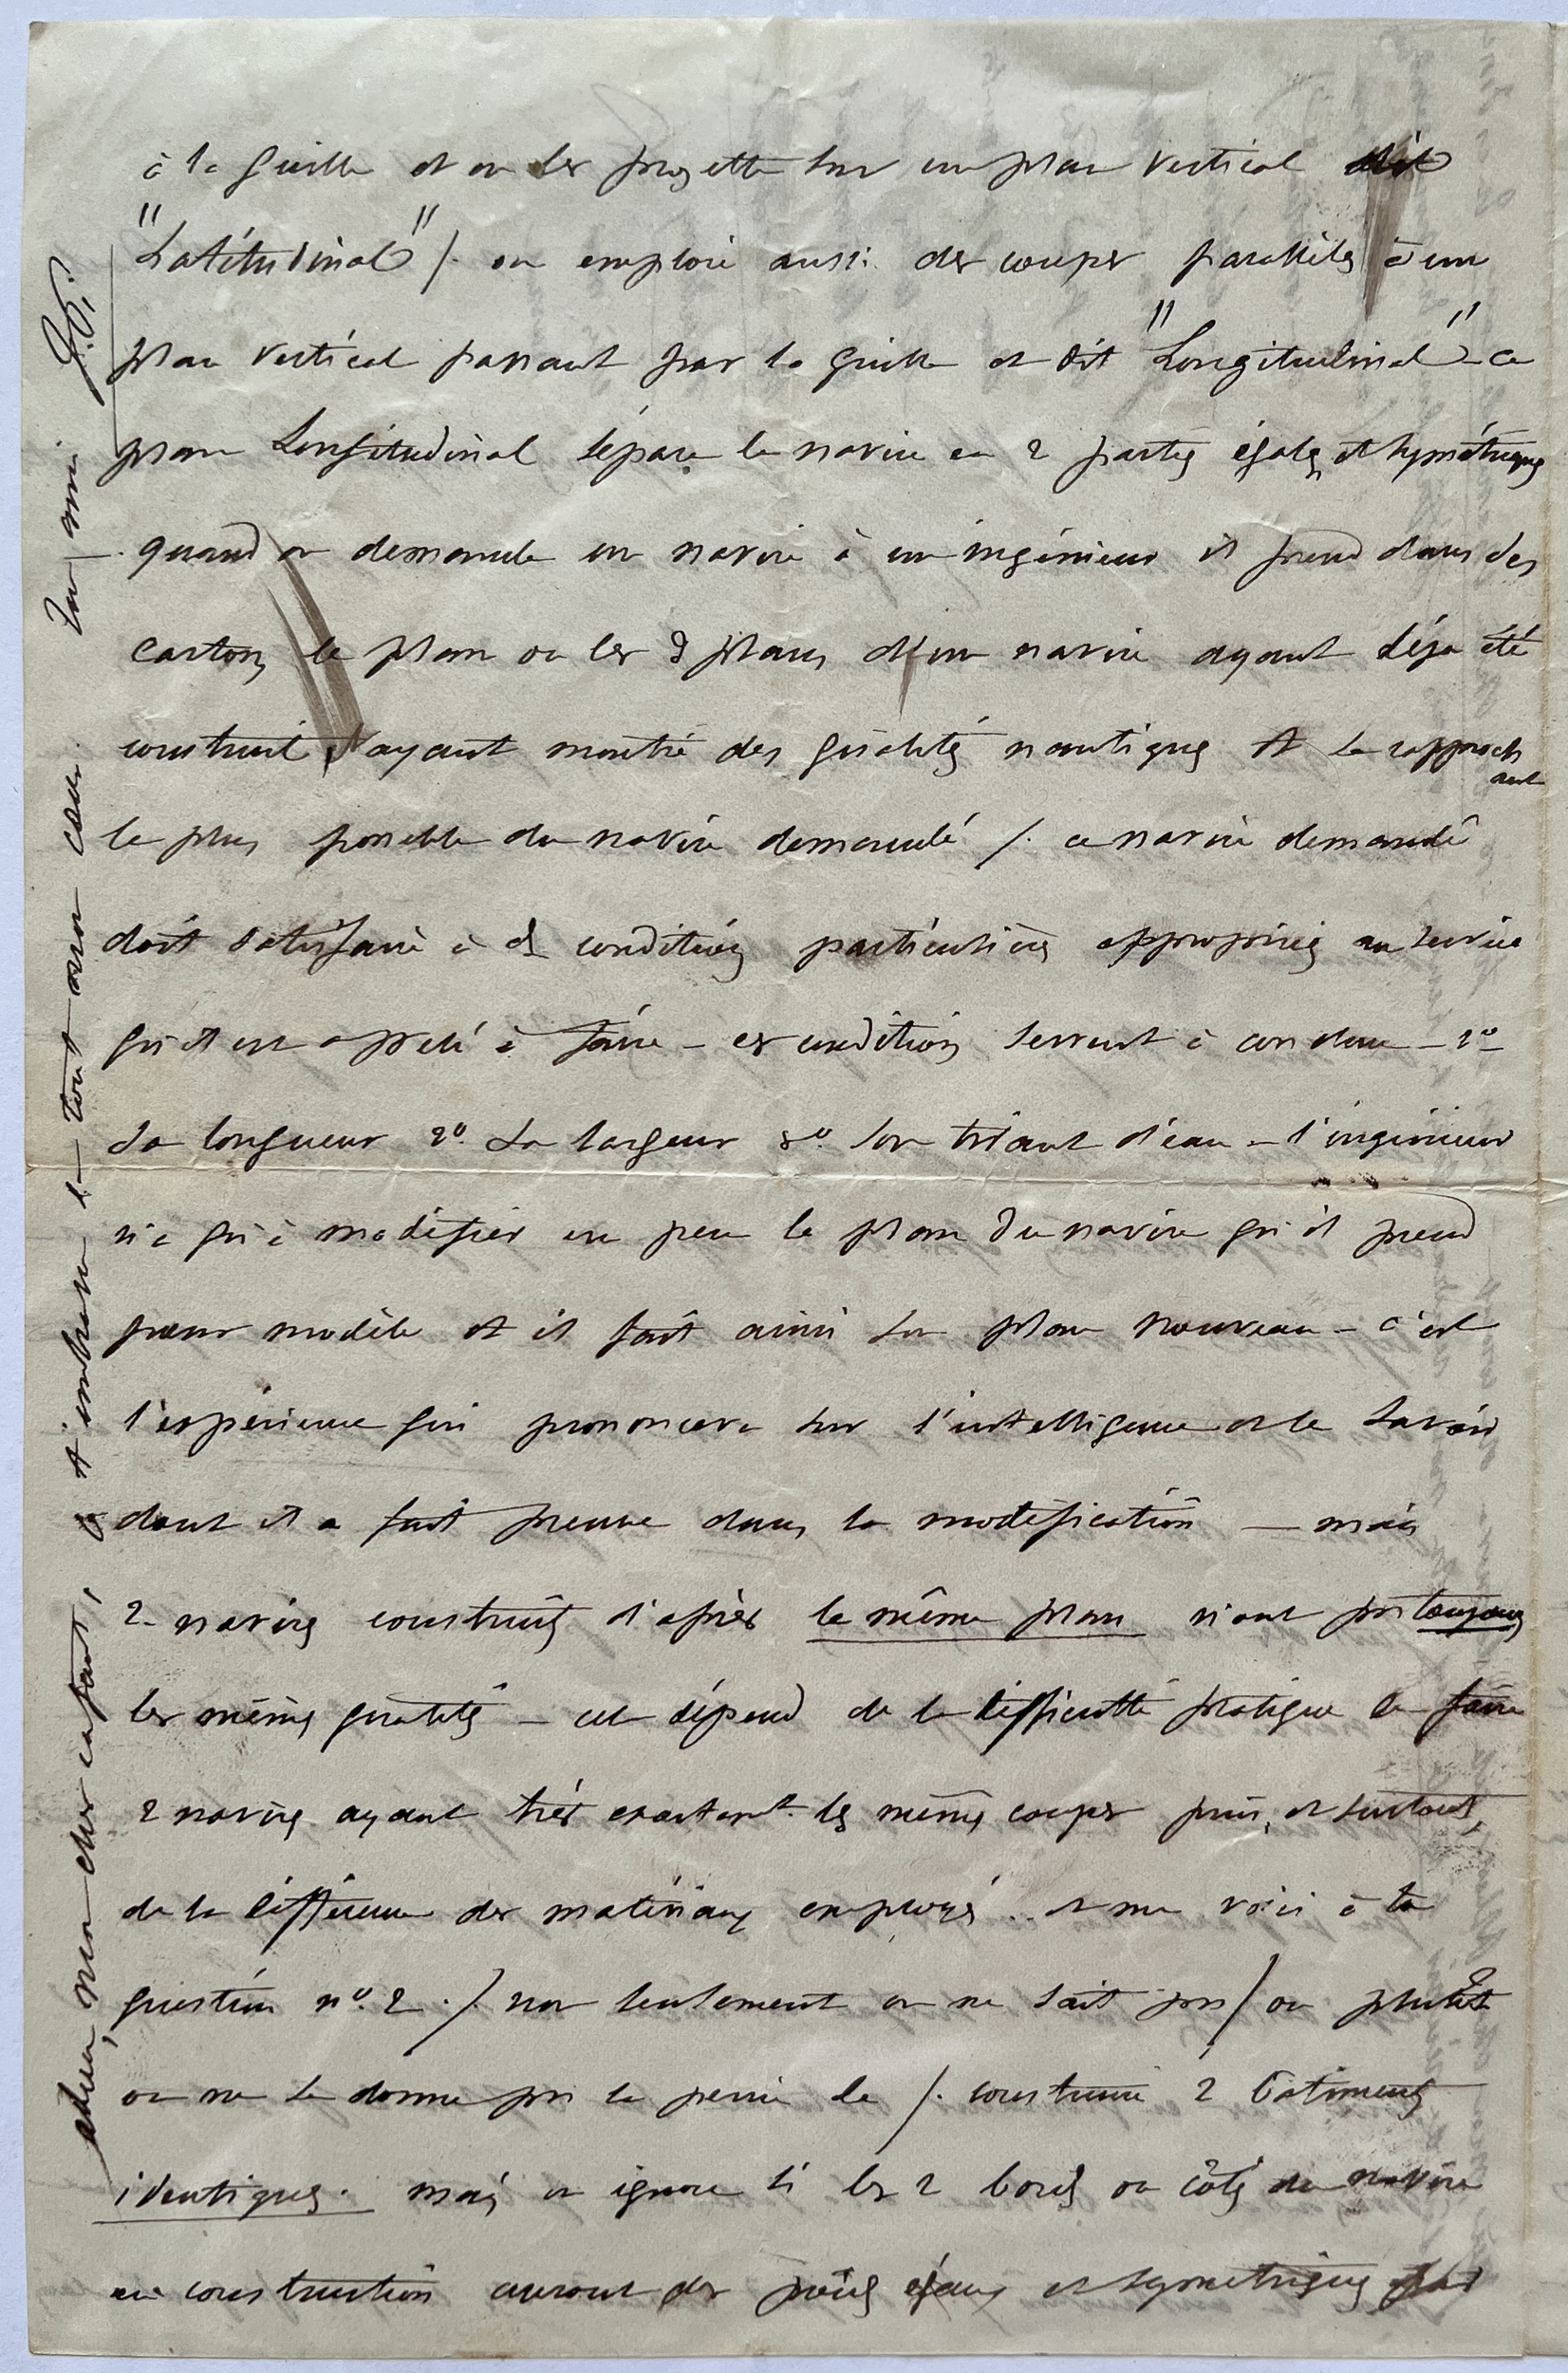 à la quille et on les projette sur un plan vertical dit
"Latitudinal" /. on emploie aussi des coupes parallèles à un
plan vertical passant par la quille et dit "Longitudinal" - ce
plan Longitudinal sépare le navire en 2 parties égales et symétriques
quand on demande un navire à un ingénieur il prend dans ses
cartons le plan ou les 3 plans d'un navire ayant déjà été
construit et ayant montré des qualités nautiques et se rapprochant
le plus possible du navire demandé /. ce navire demandé
doit satisfaire à des conditions particulières appropriées au service
qu'il est appelé à faire - ces conditions servent à conclure - 1º
sa longueur 2º. sa largeur 3º. son tirant d'eau - l'ingénieur
n'a qu'à modifier un peu le plan du navire qu'il prend
pour modèle et il fait ainsi son plan nouveau - c'est
l'expérience qui prononcera sur l'intelligence et le savoir
dont il a fait preuve dans la modification - mais
2 navires construits d'après le même plan n'ont pas toujours
les mêmes qualités - cela dépend de la difficulté pratique de faire
2 navires ayant très exactemt. les mêmes coupes puis, et surtout,
de la différence des matériaux employés .. et me voici à ta
question nº. 2 ./ non seulement on ne sait pas / ou plutôt
on ne se donne pas la peine de /. construire 2 bâtiments
identiques. mais on ignore si les 2 bords ou côtés du navire
en construction auront des poids égaux et symétriques par
adieu, mon cher enfant, je t'embrasse de tout mon cœur. ton ami